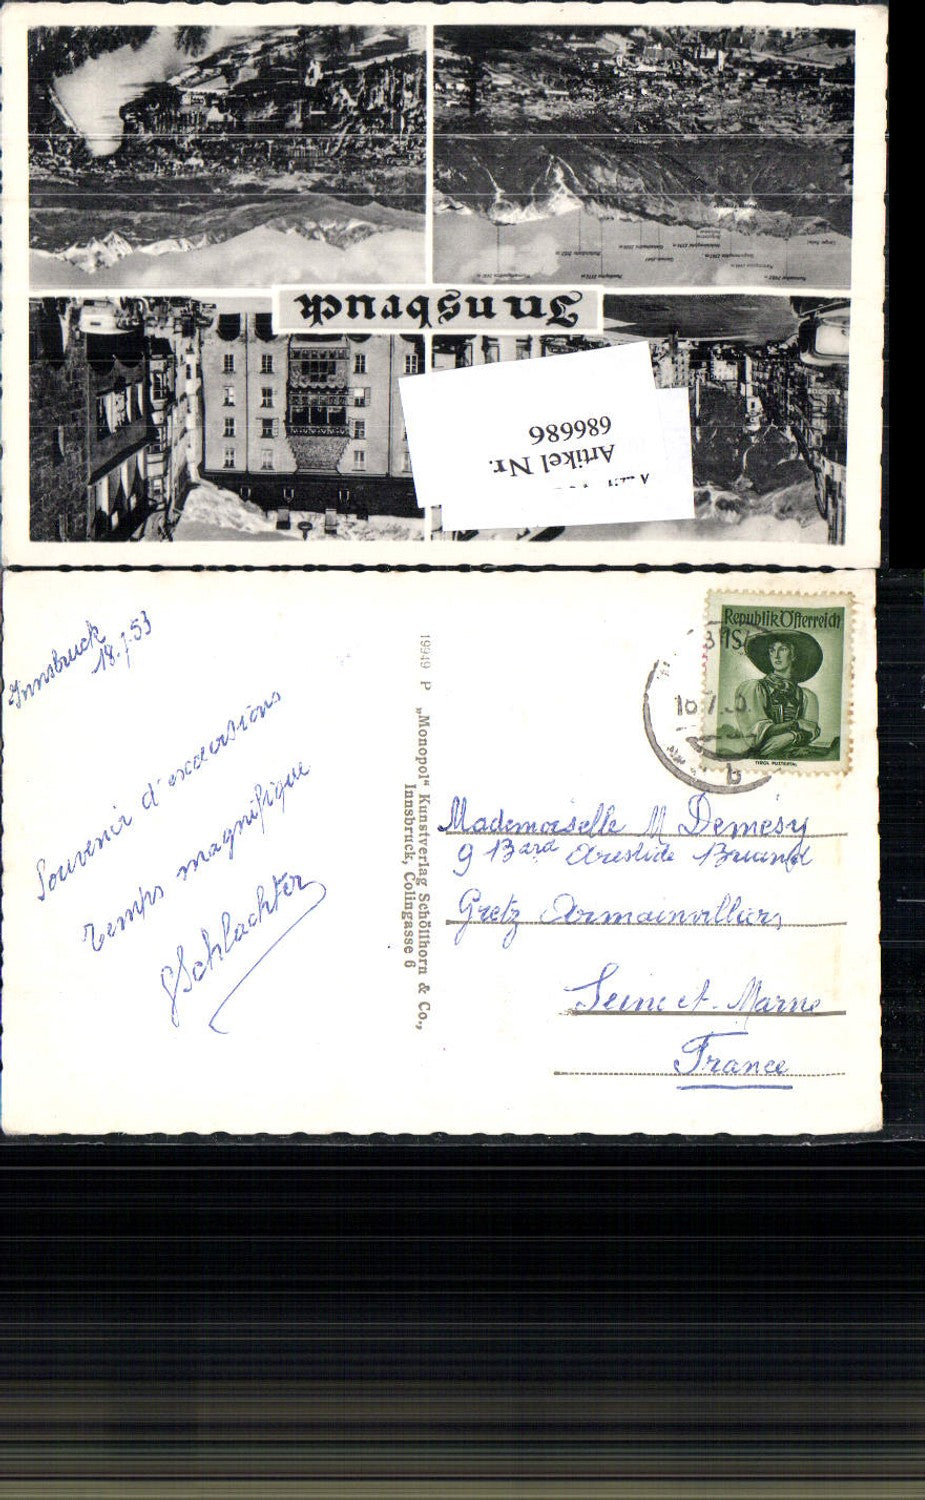 Innsbruck
Artikel Nr.
686686
Innsbruck
18.7.53
Souvenir d'excursions
temps magnifique
Schlachter
19949 P „Monopol“ Kunstverlag Schöllhorn & Co.,
Innsbruck, Colingasse 6
Republik Österreich
1S
TIROL PUSTERTAL
b
Mademoiselle M Demesy
9 Bard Aristide Briand
Gretz Armainvilliers
Seine et-Marne
France